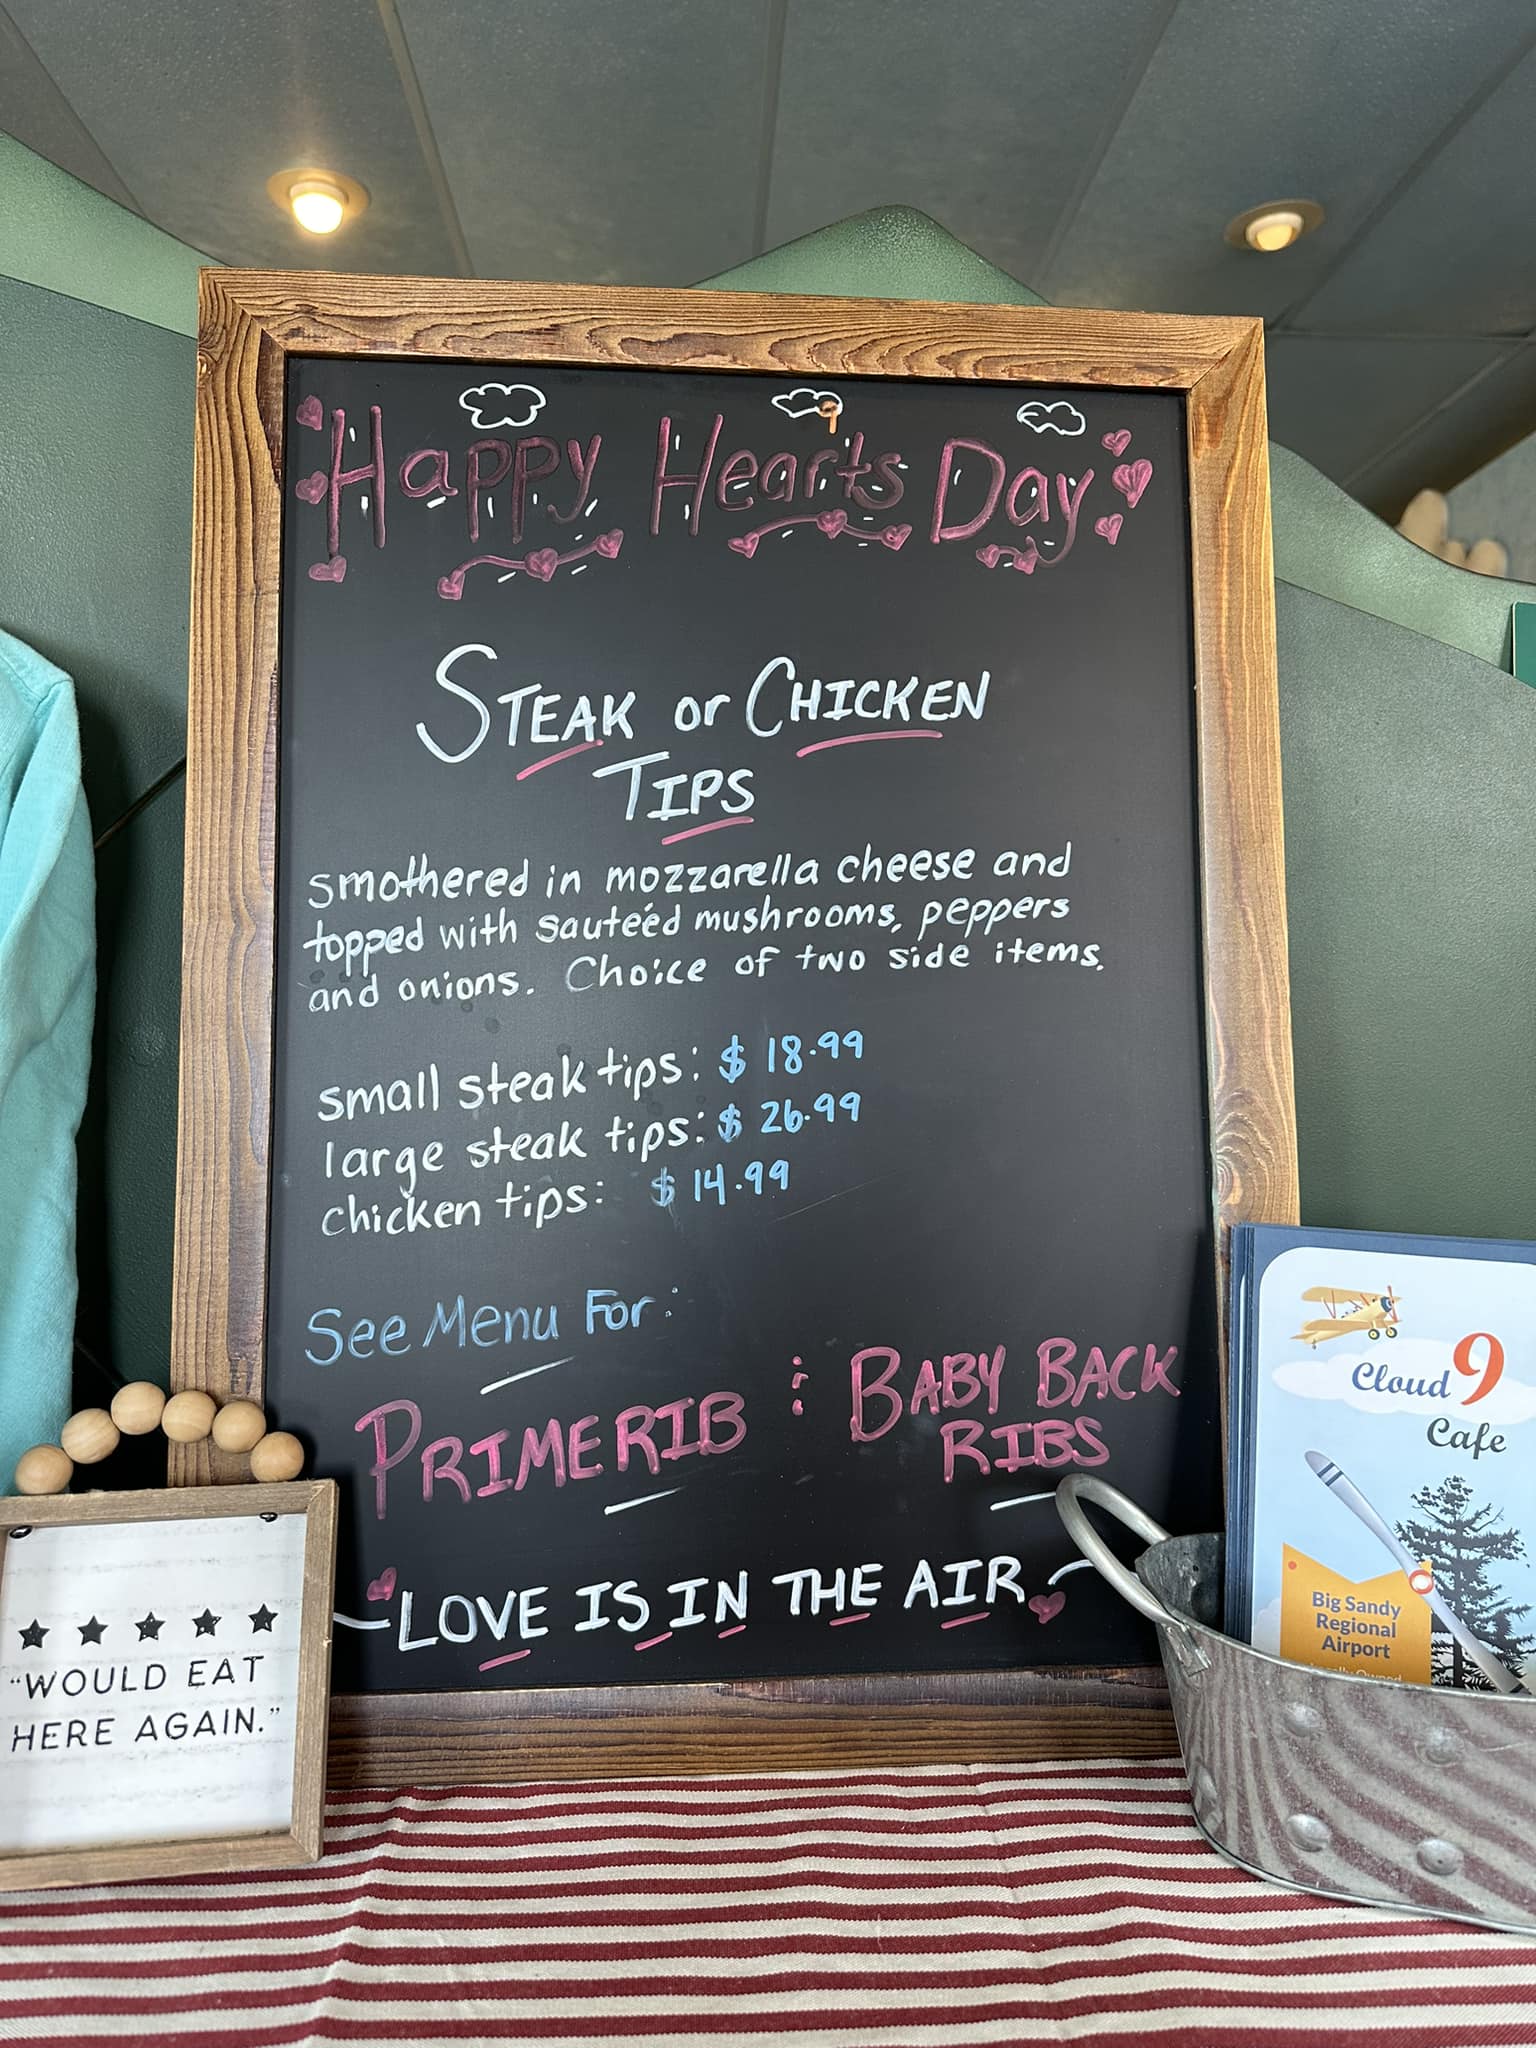 Happy Hearts Day
9
STEAK or CHICKEN
TIPS
smothered in mozzarella cheese and
topped with sauteéd mushrooms, peppers
and onions. Choice of two side items.
small steak tips: $ 18.99
large steak tips: $ 26.99
chicken tips: $ 14.99
See Menu For:
PRIME RIB : BABY BACK
RIBS
LOVE IS IN THE AIR
"WOULD EAT
HERE AGAIN."
Cloud 9
Cafe
Big Sandy
Regional
Airport
Owned